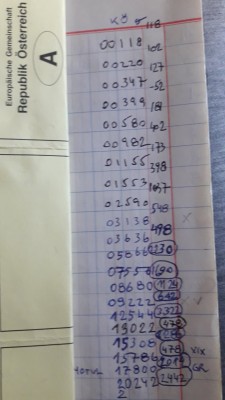 Europäische Gemeinschaft
Republik Österreich
A
118
00118 102
00220 127
00347 52
00399 181
00580 402
00982 173
01155 398
01553 1037
02590 548
03138 498
03636
05866 2230
07556 1690
08680 1124
09222
12544 3322
13022 478
15308
15786 478 Vix
17800 2014 GR
20242 2442
2